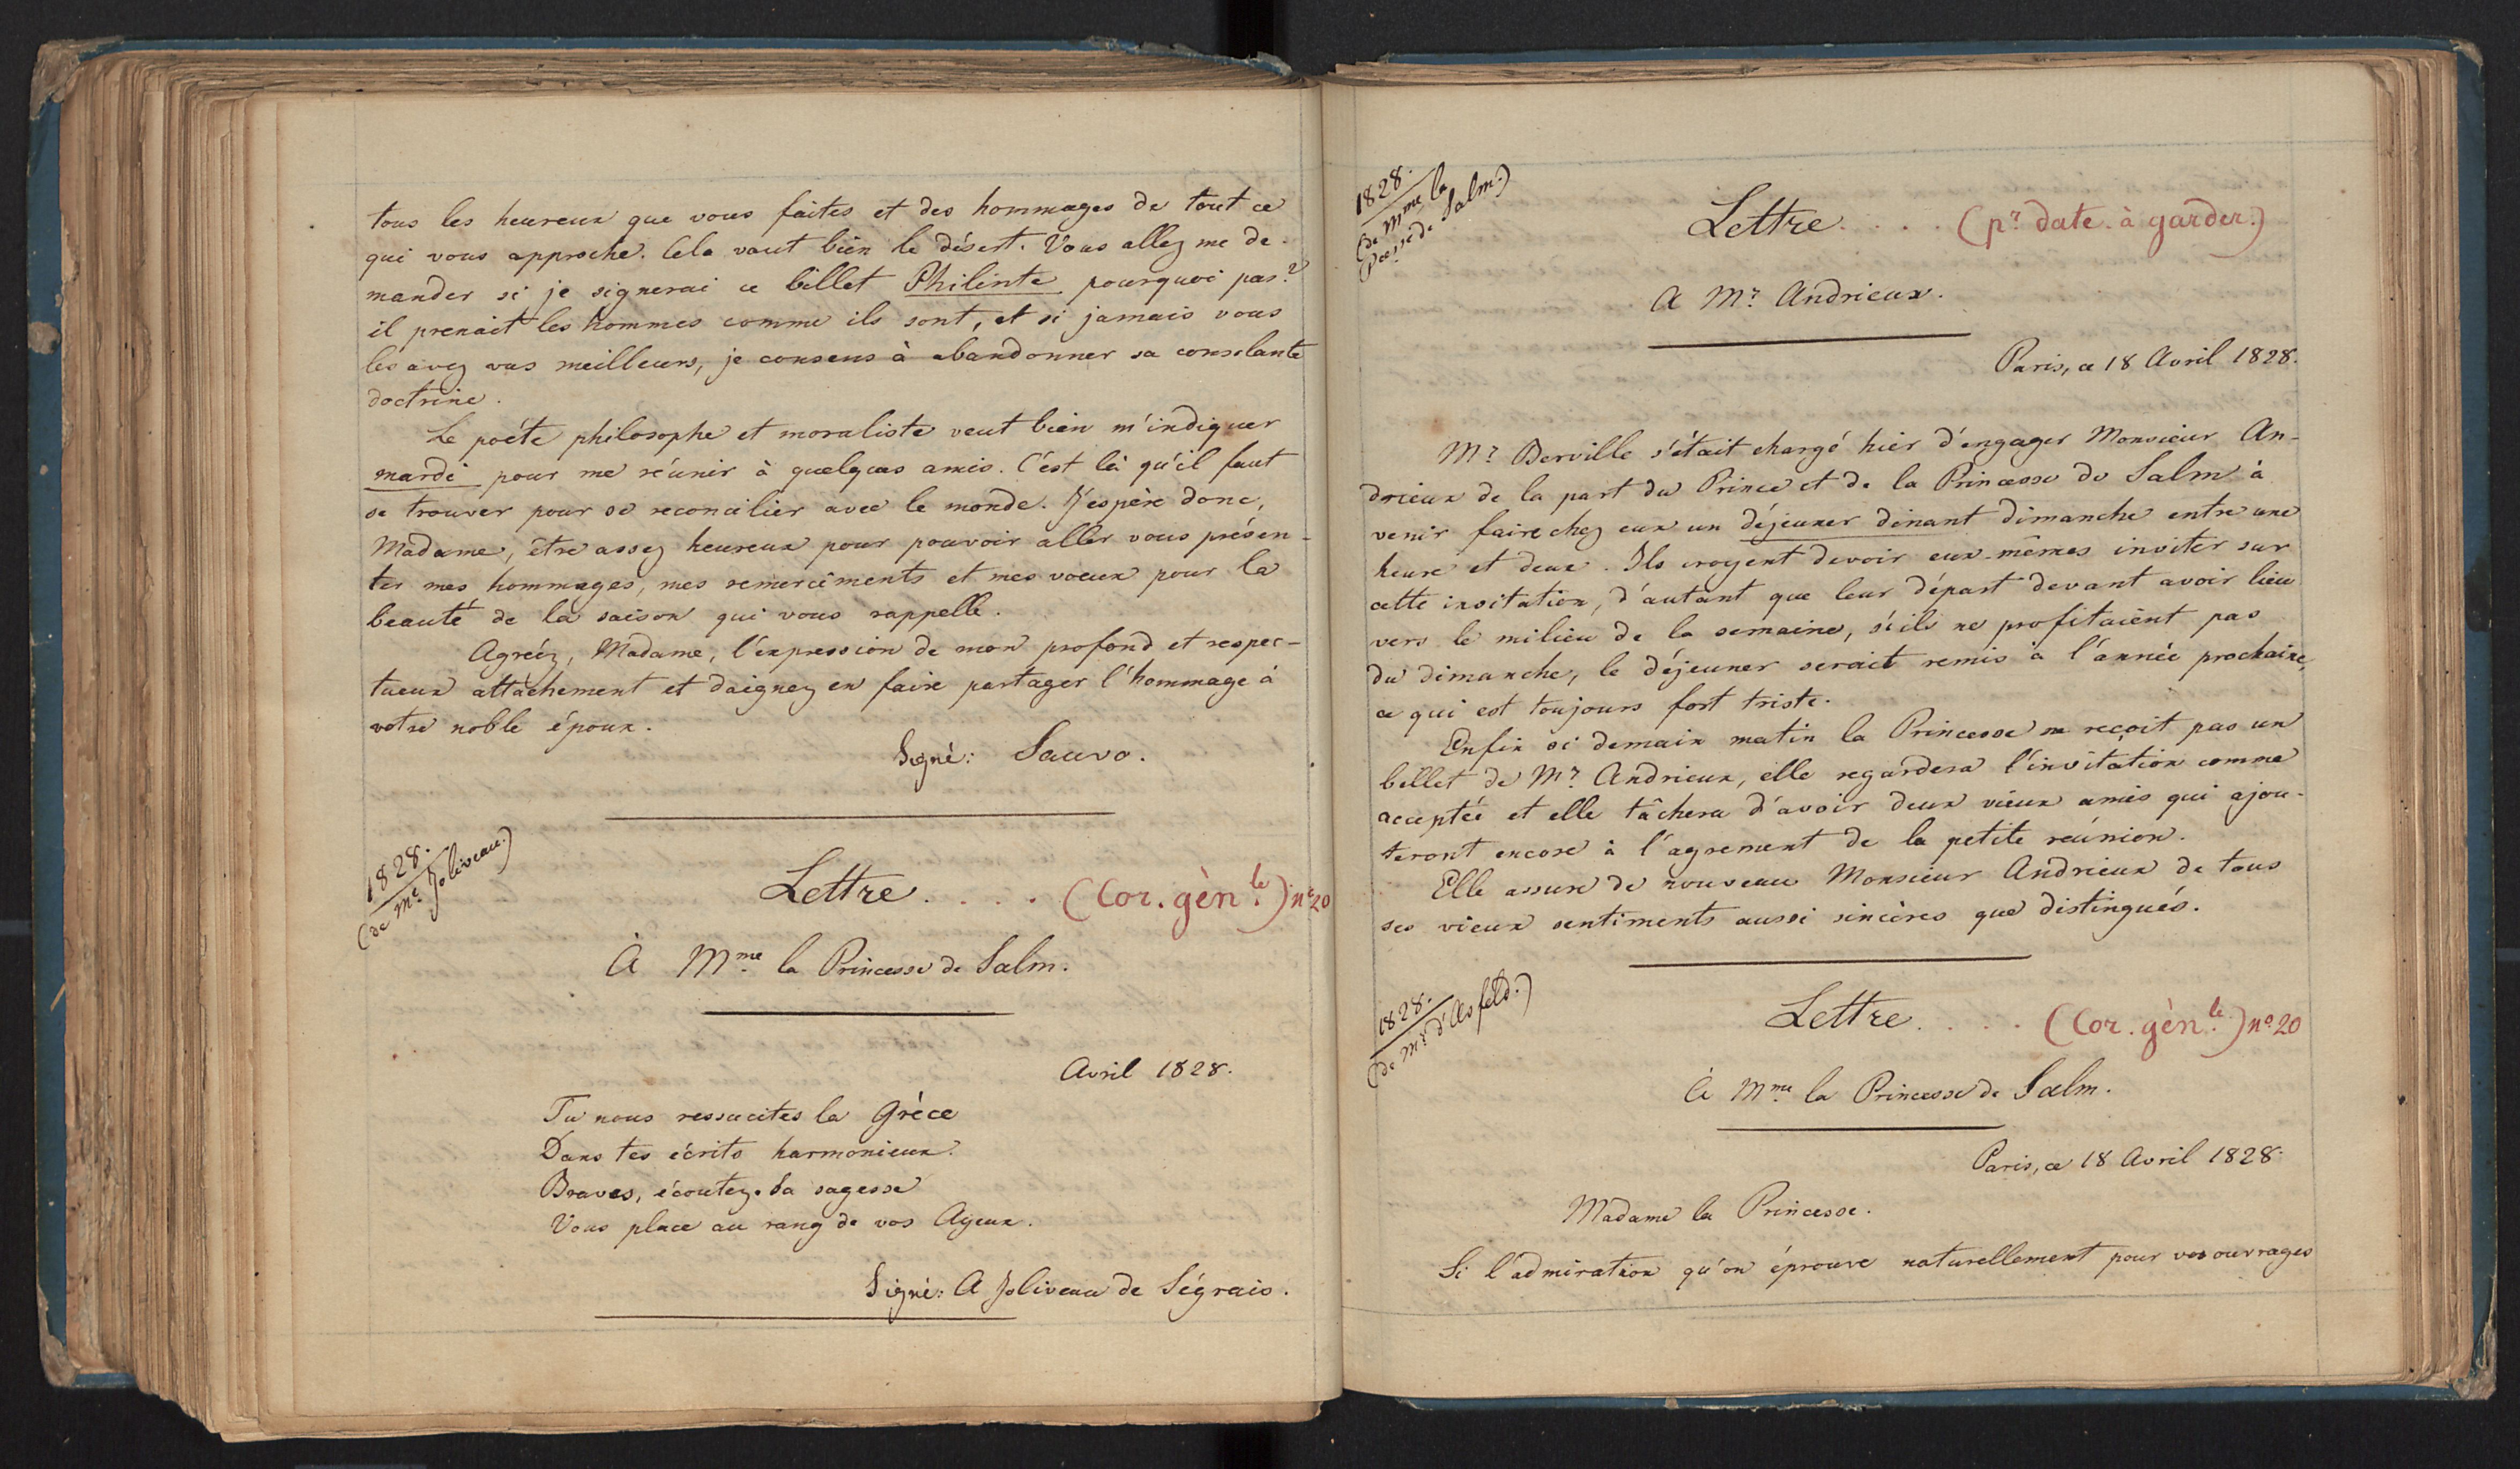 tous les heureux que vous faites et des hommages de tout ce
qui vous approche. Cela vaut bien le désert. Vous allez me de-
mander si je signerai ce billet Philinte pourquoi pas?
il prenait les hommes comme ils sont, et si jamais vous
les avez vus meilleurs, je consens à abandonner sa consolante
doctrine.
Le poéte philosophe et moraliste veut bien m'indiquer
mardi pour me réunir à quelques amis. C'est là qu'il faut
se trouver pour se reconcilier avec le monde. J'espère donc,
Madame, être assez heureux pour pouvoir aller vous présen-
ter mes hommages, mes remercîments et mes voeux pour la
beauté de la saison qui vous rappelle.
Agréez, Madame, l'expression de mon profond et respec-
tueux attachement et daignez en faire partager l'hommage à
votre noble époux.
Signé: Sauvo.
1828.
(de Mr Joliveau.)
Lettre. . . . (Cor. gèn.le) no 20
À Mme la Princesse de Salm.
Avril 1828.
Tu nous ressucites la Grèce
Dans tes écrits harmonieux.
Braves, écoutez. Sa sagesse
Vous place au rang de vos Ayeux.
Signé: A Joliveau de Ségrais.
1828.
(de Mme la
Pcesse de Salm.)
Lettre. . . . (pr date à garder.)
A Mr Andrieux.
Paris, ce 18 Avril 1828.
Mr Berville s'était chargé hier d'engager Monsieur An-
drieux de la part du Prince et de la Princesse de Salm à
venir faire chez eux un déjeuner dinant dimanche entre une
heure et deux. Ils croyent devoir eux-mêmes inviter sur
cette invitation, d'autant que leur départ devant avoir lieu
vers le milieu de la semaine, s'ils ne profitaient pas
du dimanche, le déjeuner serait remis à l'année prochaine,
ce qui est toujours fort triste.
Enfin si demain matin la Princesse ne reçoit pas un
billet de Mr Andrieux, elle regardera l'invitation comme
acceptée et elle tâchera d'avoir deux vieux amis qui ajou-
teront encore à l'agrement de la petite reúnion.
Elle assure de nouveau Monsieur Andrieux de tous
ses vieux sentiments aussi sincères que distingués.
1828.
(de Mr d'Asfeld.)
Lettre. . . . (Cor. gèn.le) no 20
À Mme la Princesse de Salm.
Paris, ce 18 Avril 1828.
Madame la Princesse.
Si l'admiration qu'on éprouve naturellement pour vos ouvrages